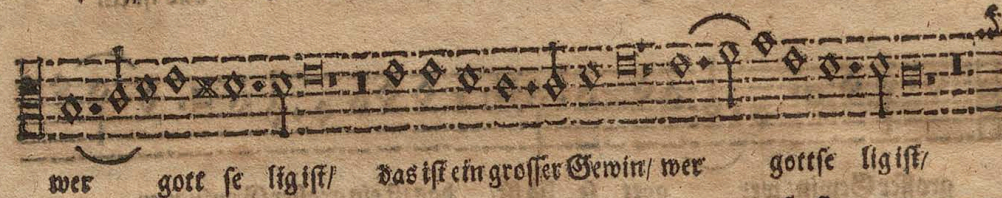 wer gott se lig ist/ das ist ein grosser Gewin/ wer gottse lig ist/